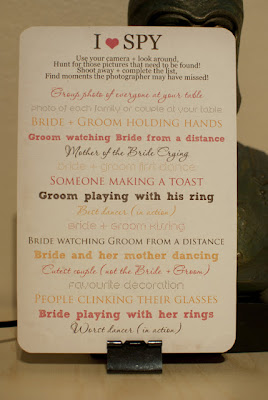 I ♥ SPY
Use your camera + look around,
Hunt for those pictures that need to be found!
Shoot away + complete the list,
Find moments the photographer may have missed!
Group photo of everyone at your table
photo of each family or couple at your table
BRIDE + GROOM HOLDING HANDS
Groom watching Bride from a distance
Mother of the Bride Crying
bride + groom first dance
SOMEONE MAKING A TOAST
Groom playing with his ring
Best dancer (in action)
bride + groom kissing
BRIDE WATCHING GROOM FROM A DISTANCE
Bride and her mother dancing
Cutest couple (not the Bride + Groom)
favourite decoration
PEOPLE CLINKING THEIR GLASSES
Bride playing with her rings
Worst dancer (in action)